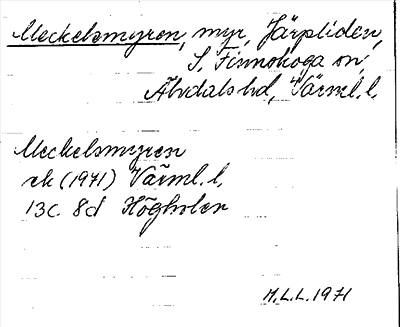 Meckelsmyren, myr, Järpliden,
S. Finnskoga sn,
Älvdals hd, Värml. l.
Meckelsmyren
ek (1971) Värml. l.
13C. 8d Högholen
M.L.L. 1971